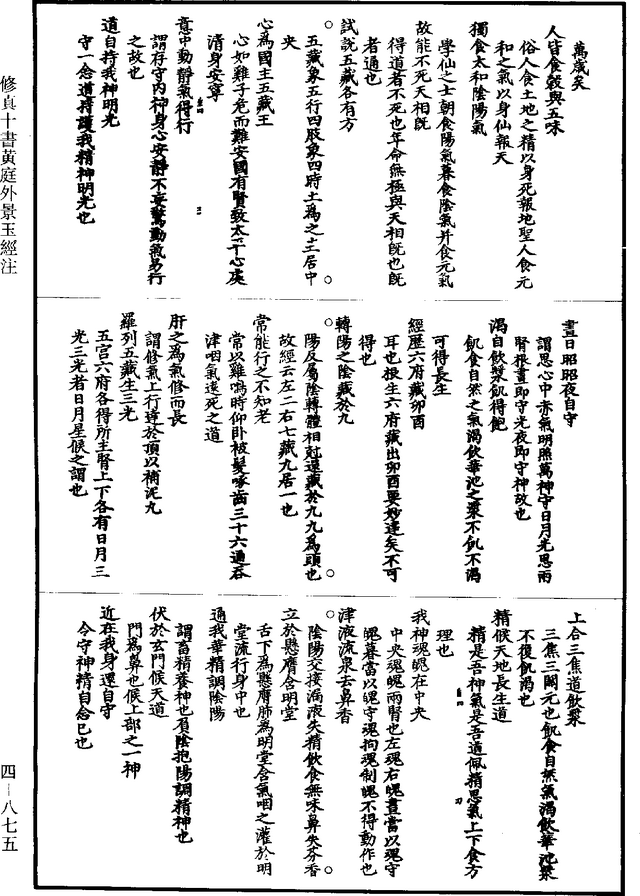 萬歲矣
人皆食穀與五味
俗人食土地之精以身死報地聖人食元
和之氣以身仙報天
獨食太和陰陽氣
學仙之士朝食陽氣暮食陰氣并食元氣
故能不死天相旣
得道者不死也年命無極與天相旣也旣
者過也
試說五藏各有方
五藏象五行四肢象四時土爲之主居中
央
心爲國主五藏王
心如雞子危而難安國有賢致太平心處
清身安寧
意中動靜氣得行
謂存守內神身心安靜不妄驚動氣易行
之故也
道自持我神明光
守一念道持護我精神明光也
晝日昭昭夜自守
謂思心中赤氣明照萬神守日月光思兩
腎根晝即守光夜即守神故也
渴自飲漿飢得飽
飢食自然之氣渴飲華池之漿不飢不渴
可得長生
經歷六府藏卯酉
耳也投生六府藏出卯酉要妙遠矣不可
得也
轉陽之陰藏於九
陽反屬陰轉體相尅還藏於九九爲頭也
故經云左二右七藏九居一也
常能行之不知老
常以雞鳴時仰卧被髮啄齒三十六通吞
津咽氣遠死之道
肝之爲氣修而長
謂修氣上行導於頂以補泥丸
羅列五藏生三光
五宮六府各得所主腎上下各有日月三
光三光者日月星候之謂也
上合三焦道飲漿
三焦三關元也飢食自然氣渴飲華池漿
不復飢渴也
精候天地長生道
精是吾神氣是吾道佩精思氣上下食方
理也
我神魂魄在中央
中央魂魄兩腎也左魂右魄晝當以魂守
魄暮當以魄守魂拘魂制魄不得動作也
津液流泉去鼻香
陰陽交接漏液失精飲食無味鼻失芬香
立於懸膺含明堂
舌下爲懸膺肺爲明堂含氣咽之灌於明
堂流行身中也
通我華精調陰陽
謂畜精養神也負陰抱陽調精神也
伏於玄門候天道
門爲鼻也候上部之一神
近在我身還自守
令守神精自念已也
修真十書黃庭外景玉經注
四—八七五